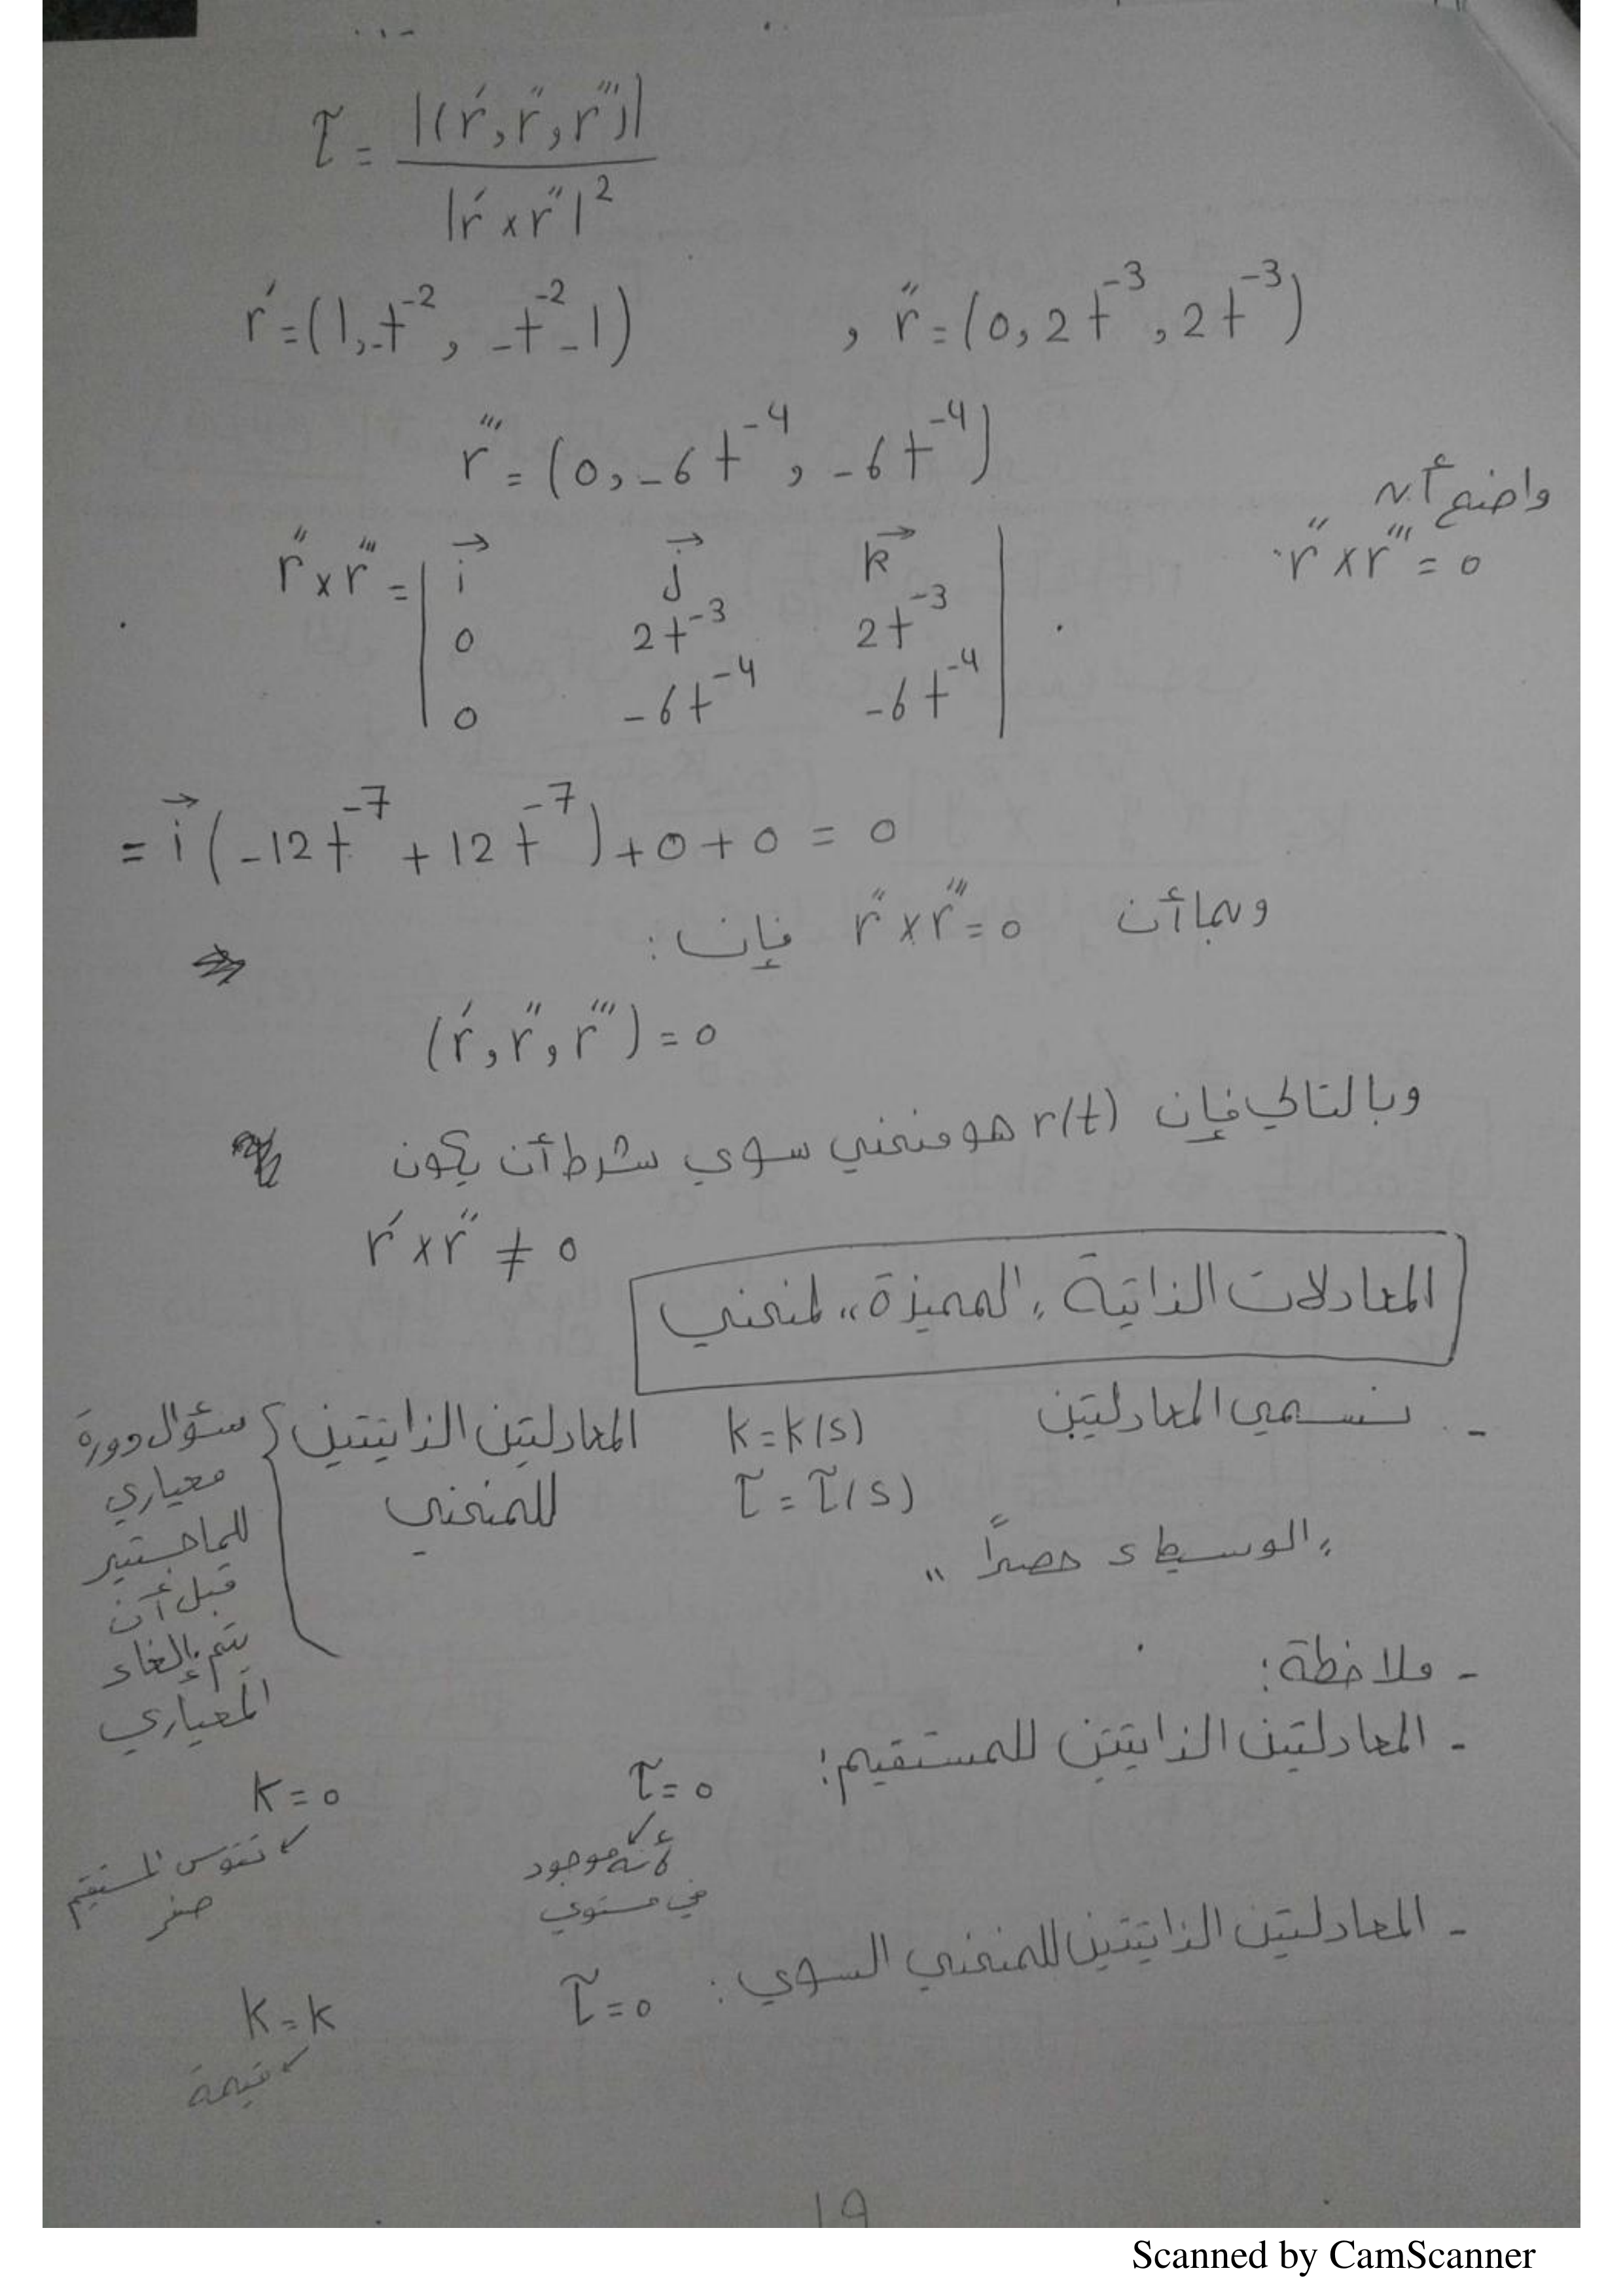 τ = |(r′, r″, r‴)| / |r′ × r″|²
r′ = (1, -t⁻², -t⁻² - 1) , r″ = (0, 2t⁻³, 2t⁻³)
r‴ = (0, -6t⁻⁴, -6t⁻⁴)
واضح أن
r″ × r‴ = 0
r″ × r‴ = | i j k |
| 0 2t⁻³ 2t⁻³ |
| 0 -6t⁻⁴ -6t⁻⁴ |
= i (-12t⁻⁷ + 12t⁻⁷) + 0 + 0 = 0
وبما أن r″ × r‴ = 0 فإن :
(r′, r″, r‴) = 0
وبالتالي فإن r(t) هو منحني سوي شرط أن يكون
r′ × r″ ≠ 0
المعادلات الذاتية "المميزة" لمنحني
- نسمي المعادلتين k = k(s) المعادلتين الذاتيتين
τ = τ(s) للمنحني
"الوسيط s حصراً"
سؤال دورة
معياري
للماجستير
قبل أن
يتم إلغاء
المعياري
- ملاحظة :
- المعادلتين الذاتيتين للمستقيم : τ = 0 k = 0
لأنه موجود
في مستوي
تقوس المستقيم
صفر
- المعادلتين الذاتيتين للمنحني السوي : τ = 0 k = k
قيمة
19
Scanned by CamScanner